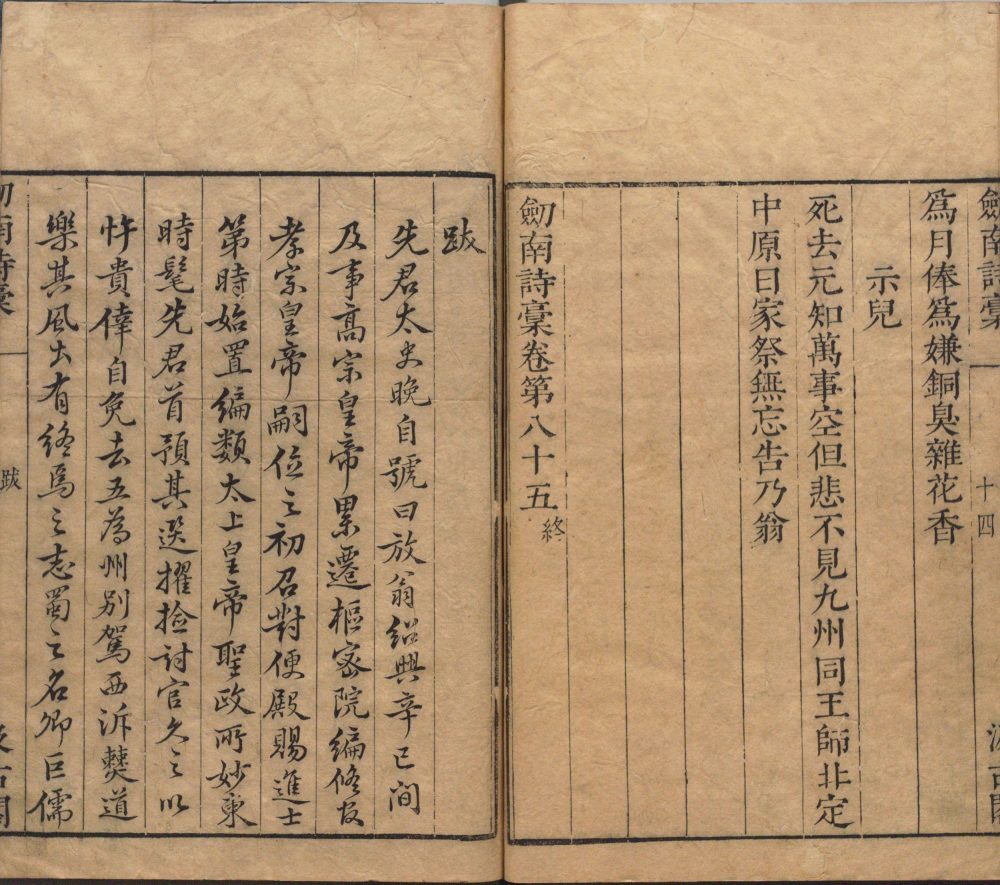 劎南詩稾
十四
爲月俸爲嫌銅臭雜花香
示兒
死去元知萬事空但悲不見九州同王師北定
中原日家祭無忘告乃翁
劎南詩稾卷第八十五 終
跋
先君太史晚自號曰放翁紹興辛巳間
及事高宗皇帝累遷樞密院編修官
孝宗皇帝嗣位之初召對便殿賜進士
第時始置編類太上皇帝聖政所妙柬
時髦先君首預其選擢檢討官久之以
忤貴倖自免去五為州別駕西泝僰道
樂其風土有終焉之志蜀之名卿巨儒
跋